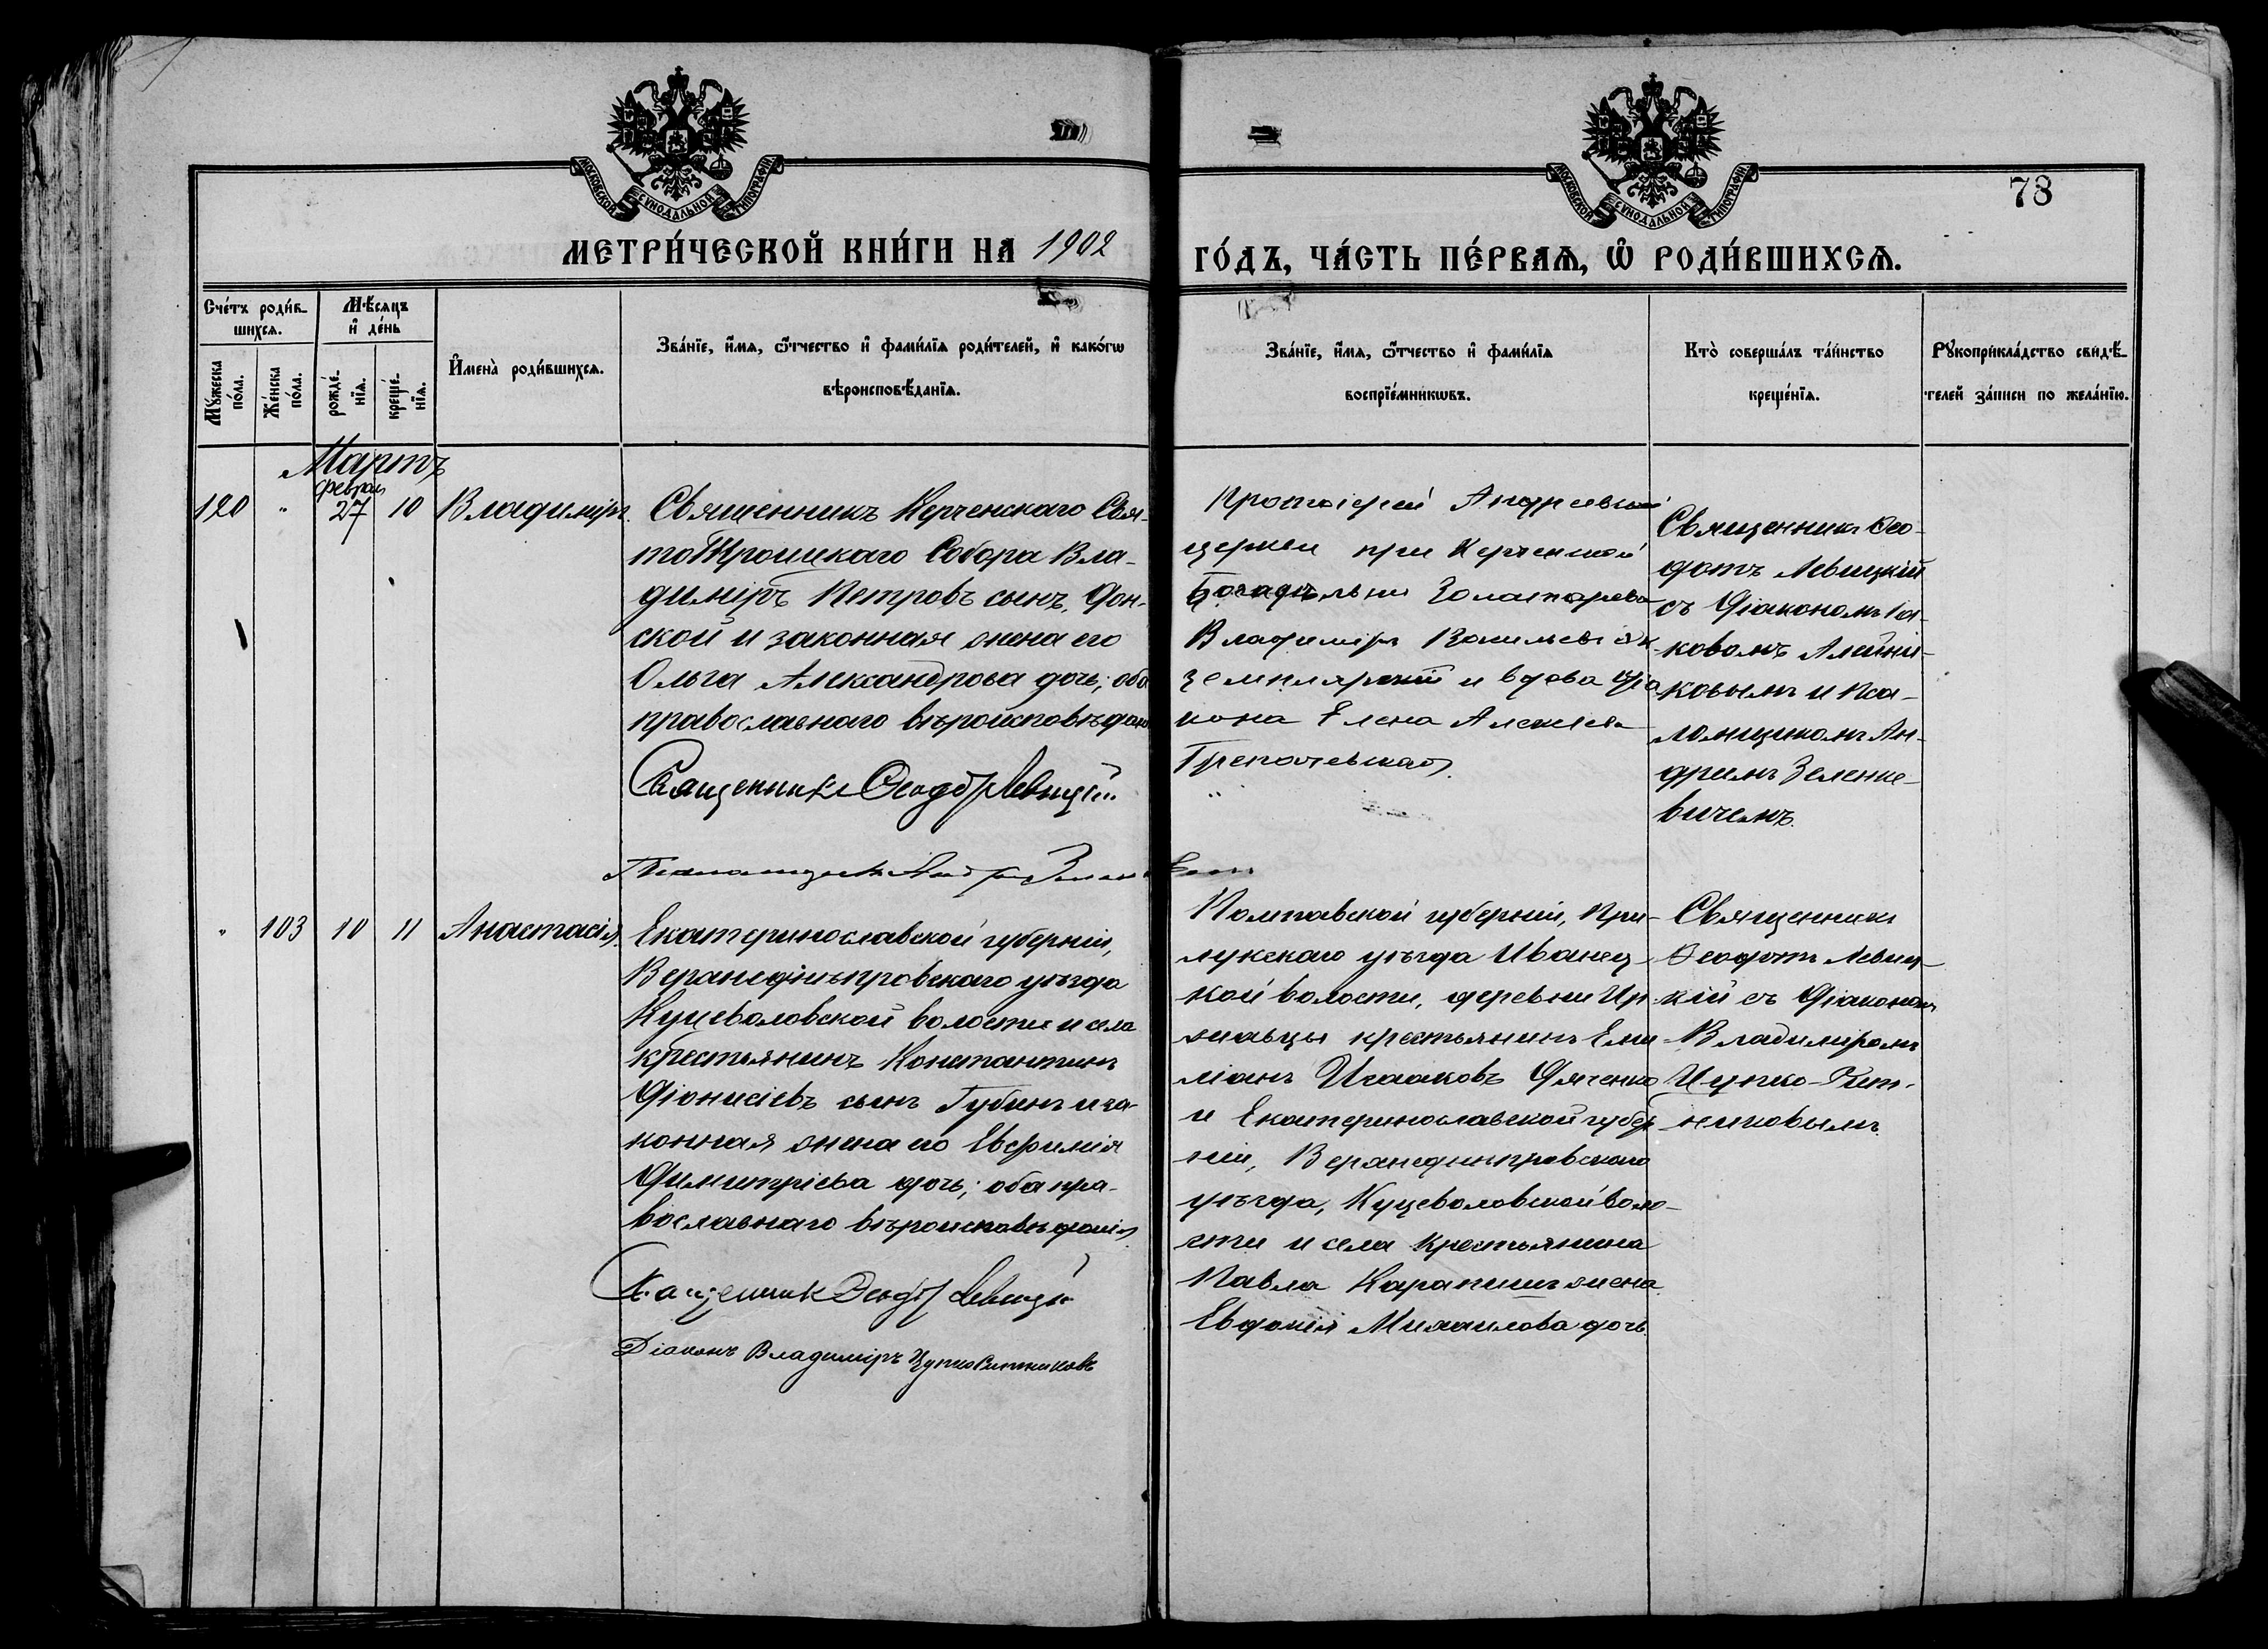 МОСКОВСКОЙ СѴНОДАЛЬНОЙ ТИПОГРАФІИ
МОСКОВСКОЙ СѴНОДАЛЬНОЙ ТИПОГРАФІИ
78
МЕТРИ́ЧЕСКОЙ КНИ́ГИ НА 1902
ГО́ДЪ, ЧА́СТЬ ПЕ́РВАѦ, Ѡ҆ РОДИ́ВШИХСѦ.
Сче́тъ роди́в-
шихсѧ.
Мꙋжеска
по́ла.
Же́нска
по́ла.
Мѣ́сѧцъ
и҆ де́нь
рожде́-
нїѧ.
креще́-
нїѧ.
И҆мена̀ роди́вшихсѧ.
Зва́нїе, и҆́мѧ, ѻ҆́тчество и҆ фами́лїѧ роди́телей, и҆ како́гѡ
вѣроисповѣ́данїѧ.
Зва́нїе, и҆́мѧ, ѻ҆́тчество и҆ фами́лїѧ
воспрїе́мникѡвъ.
Кто̀ соверша́лъ та́инство
креще́нїѧ.
Рꙋкоприкла́дство свидѣ́-
телей за́писи по жела́нїю.
Мартъ
120 " феврал 27 10 Владиміръ.
Священникъ Керченскаго Свя-
тоТроицкаго Собора Вла-
диміръ Петровъ сынъ, Дон-
ской и законная жена его
Ольга Александрова дочь; оба
православнаго вѣроисповѣдан
Священникъ Ѳеодотъ Левицкій
Псаломщикъ
Протоіерей Андреевской
церкви при Керченской
Богадѣльни
Владиміръ Васильевъ Эк-
земплярскій и вдова діа
кона Елена Алексіева
"
Священникъ Ѳео-
дотъ Левицкій
съ Діакономъ Іа-
ковомъ Алейни-
ковымъ и Пса-
ломщикомъ Ан-
дреемъ Зеленке-
вичемъ.
" 103 10 11 Анастасія.
Екатеринославской губерніи,
Верхнеднѣпровскаго уѣзда
Куцеволовской волости и села
крестьянинъ Константинъ
Діонисіевъ сынъ Губинъ и за-
конная жена его Евфимія
Димитріева дочь; оба пра-
вославнаго вѣроисповѣданія
Священникъ Ѳеодотъ Левицкій
Діаконъ Владиміръ Цупко Ситниковъ
Полтавской губерніи, При-
лукскаго уѣзда Иваниц-
кой волости, деревни Ир-
жавцы крестьянинъ Еми
ліанъ Исааковъ Дяченко
и Екатеринославской губер
ніи, Верхнеднѣпровскаго
уѣзда, Куцеволовской воло-
сти и села крестьянина
Павла жена
Евдокія Михаилова дочь.
Священникъ
Ѳеодотъ Левиц-
кій съ Діакономъ
Владиміромъ
Цупко-Сит-
никовымъ.